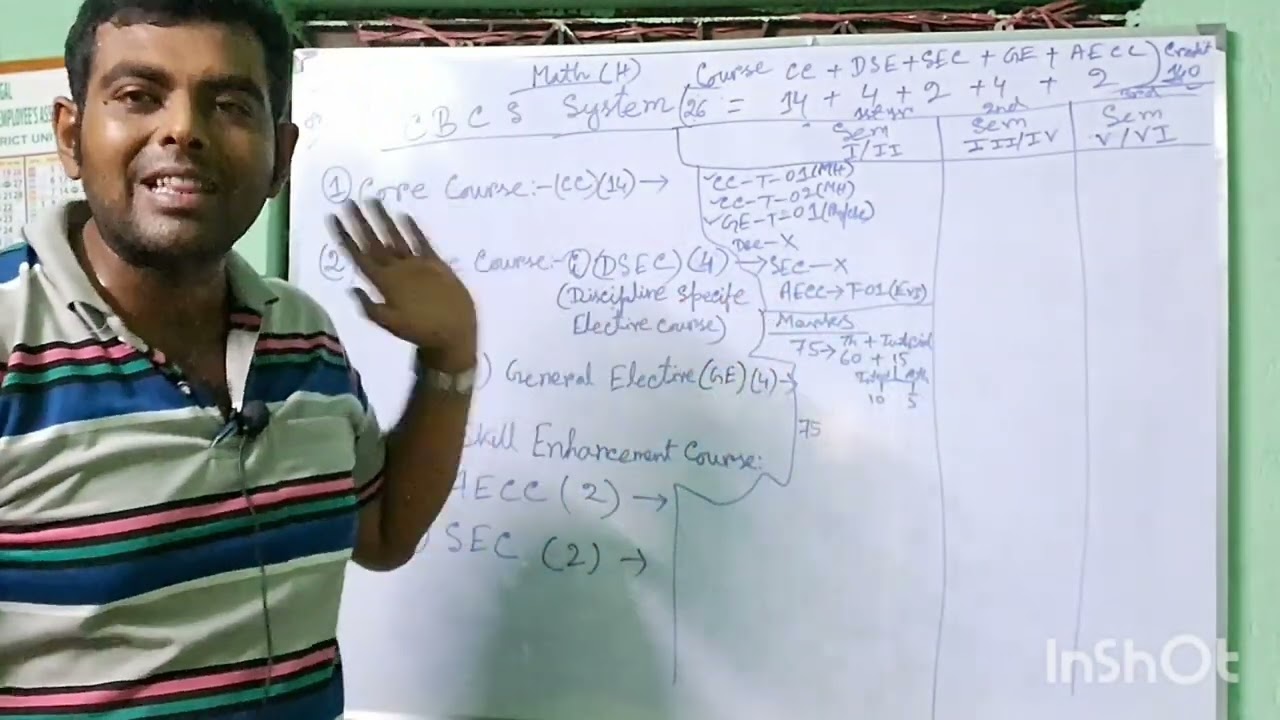 GAL
EMPLOYEE'S ASS
DISTRICT UNI
Math (H)
Course CC + DSE + SEC + GE + AECC) Credit
CBCS System (26 = 14 + 4 + 2 + 4 + 2 140
1st yr 2nd 3rd
Sem I/II
Sem III/IV
Sem V/VI
① Core Course:-(CC)(14) →
CC-T-01(MH)
CC-T-02(MH)
GE-T-01
(2 Course:- i) (DSEC) (4) →
(Discipline Specific
Elective course)
DSC-X
SEC-X
AECC → T-01
Marks
75 → Th + Tutorial
60 + 15
10 5
) General Elective (GE) (4) →
75
Skill Enhancement Course:
AECC (2) →
) SEC (2) →
InShOt